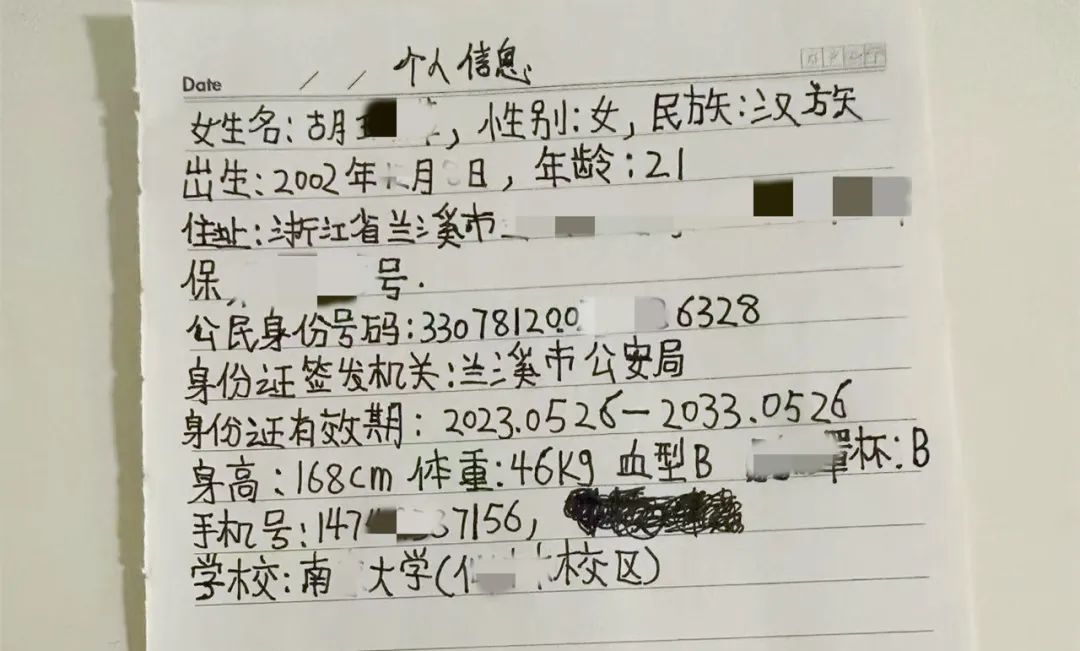 Date / / 个人信息
女生名:胡 , 性别:女, 民族:汉族
出生:2002年 月 日, 年龄:21
住址:浙江省兰溪市
保 号.
公民身份号码:33078120 0 6328
身份证签发机关:兰溪市公安局
身份证有效期: 2023.0526-2033.0526
身高:168cm 体重:46Kg 血型B 罩杯:B
手机号:147 37156,
学校:南 大学( 校区)